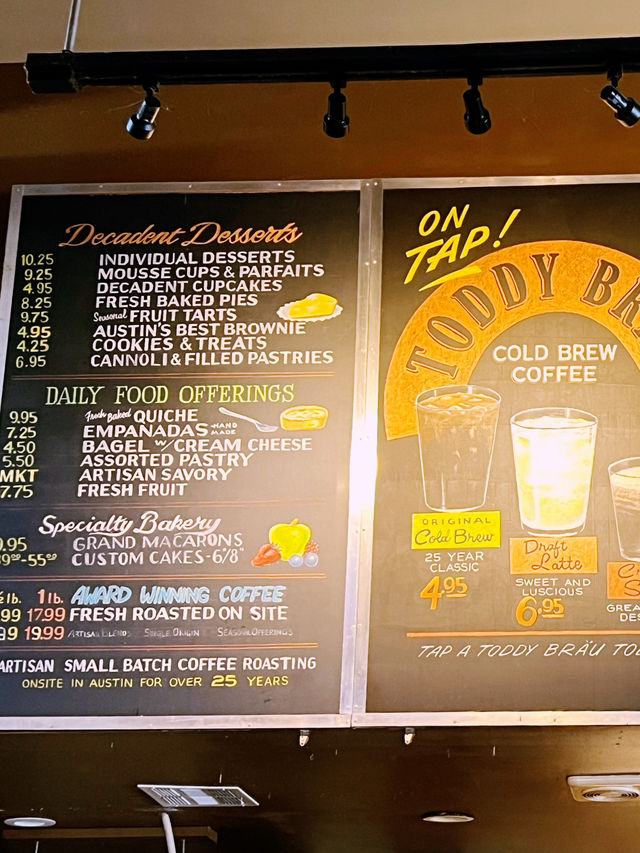 Decadent Desserts
10.25 INDIVIDUAL DESSERTS
9.25 MOUSSE CUPS & PARFAITS
4.95 DECADENT CUPCAKES
8.25 FRESH BAKED PIES
9.75 Seasonal FRUIT TARTS
4.95 AUSTIN'S BEST BROWNIE
4.25 COOKIES & TREATS
6.95 CANNOLI & FILLED PASTRIES
DAILY FOOD OFFERINGS
9.95 Fresh Baked QUICHE
7.25 EMPANADAS HAND MADE
4.50 BAGEL w/ CREAM CHEESE
5.50 ASSORTED PASTRY
MKT ARTISAN SAVORY
7.75 FRESH FRUIT
Specialty Bakery
.95 GRAND MACARONS
CUSTOM CAKES - 6/8"
lb. 1lb. AWARD WINNING COFFEE
99 17.99 FRESH ROASTED ON SITE
99 19.99 ARTISAN BLENDS SINGLE ORIGIN SEASONAL OFFERINGS
ARTISAN SMALL BATCH COFFEE ROASTING
ONSITE IN AUSTIN FOR OVER 25 YEARS
ON
TAP!
TODDY BR
COLD BREW
COFFEE
ORIGINAL
Cold Brew
25 YEAR
CLASSIC
4.95
Draft
Latte
SWEET AND
LUSCIOUS
6.95
C
S
GREA
DES
TAP A TODDY BRÄU TO